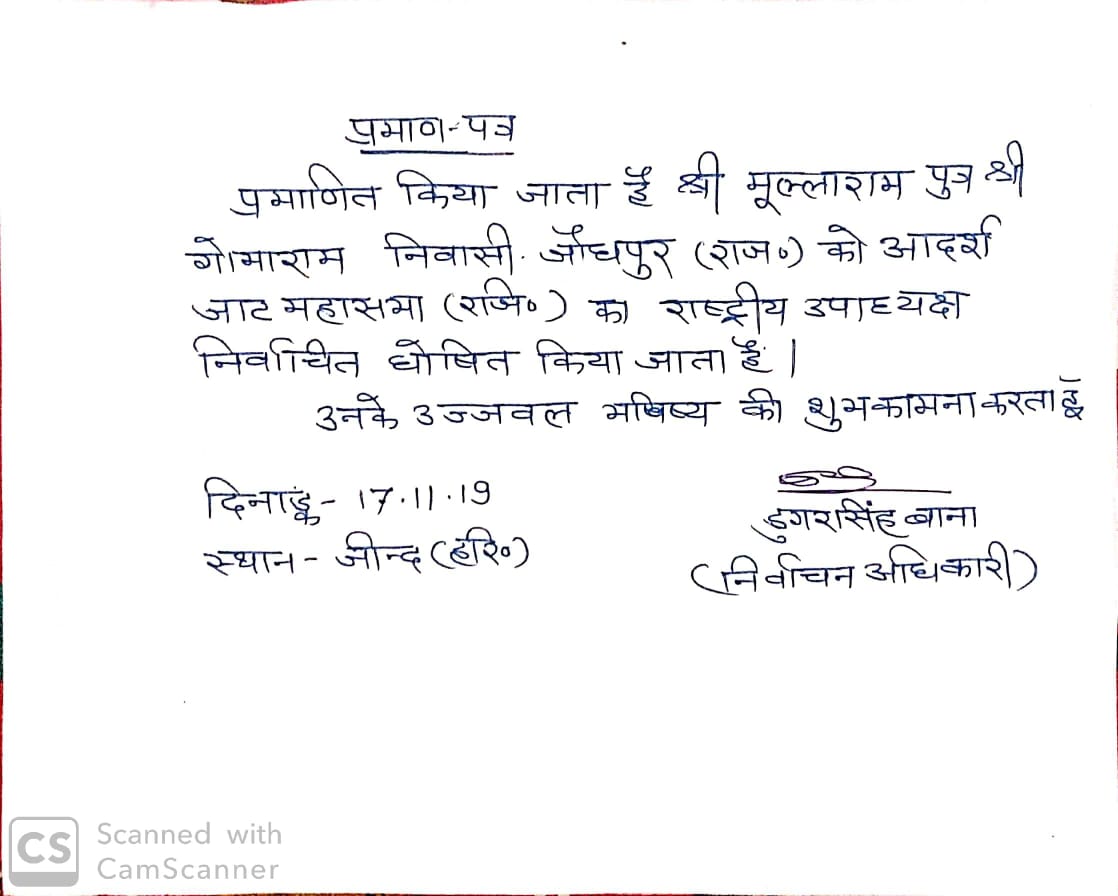 प्रमाण-पत्र
प्रमाणित किया जाता है श्री मूल्लाराम पुत्र श्री
गोमाराम निवासी. जौधपुर (राज०) को आदर्श
जाट महासभा (रजि०) का राष्ट्रीय उपाध्यक्ष
निर्वाचित घोषित किया जाता है।
उनके उज्जवल भविष्य की शुभकामना करता हूँ
दिनाङ्क - 17.11.19
डुगरसिंह बाना
स्थान - जीन्द (हरि०)
(निर्वाचन अधिकारी)
CS Scanned with
CamScanner